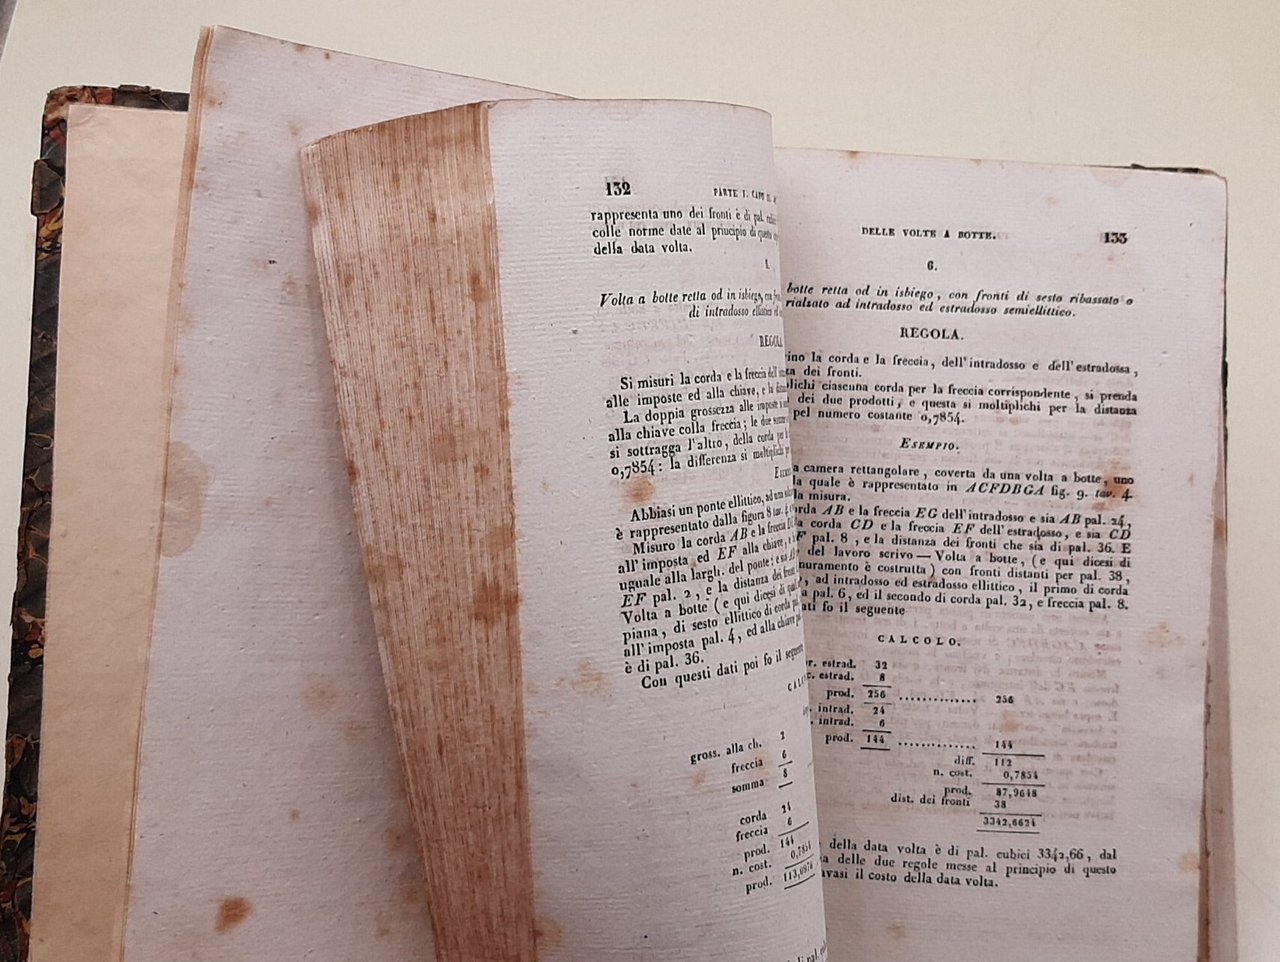 132
PARTE I. CAPO II.
rappresenta uno dei fronti è di pal.
colle norme date al priucipio di questo
della data volta.
Volta a botte retta od in isbiego, con
di intradosso ellittico ed
REGOLA
Si misuri la corda e la freccia dell'
alle imposte ed alla chiave, e la
La doppia grossezza alle imposte si
alla chiave colla freccia; le due somme
si sottragga l'altro, della corda per la
0,7854: la differenza si moltiplichi per
Abbiasi un ponte ellittico, ad una
è rappresentato dalla figura 8 tav. 4.
Misuro la corda AB e la freccia
all' imposta ed EF alla chiave, e
uguale alla largh. del ponte: e sia
EF pal. 2, e la distanza dei fronti
Volta a botte (e qui dicesi di
piana, di sesto ellittico di corda pal.
all' imposta pal. 4, ed alla chiave pal.
è di pal. 36.
Con questi dati poi fo il seguente
gross. alla ch. 2
freccia 6
somma 8
corda 24
freccia 6
prod. 144
n. cost. 0,7854
prod. 113,0976
DELLE VOLTE A BOTTE. 133
6.
botte retta od in isbiego, con fronti di sesto ribassato o
rialzato ad intradosso ed estradosso semiellittico.
REGOLA.
la corda e la freccia, dell' intradosso e dell' estradossa,
dei fronti.
ciascuna corda per la freccia corrispondente, si prenda
dei due prodotti, e questa si moltiplichi per la distanza
pel numero costante 0,7854.
ESEMPIO.
a camera rettangolare, coverta da una volta a botte, uno
la quale è rappresentato in ACFDBGA fig. 9. tav. 4.
la misura.
AB e la freccia EG dell' intradosso e sia AB pal. 24,
corda CD e la freccia EF dell' estradosso, e sia CD
pal. 8, e la distanza dei fronti che sia di pal. 36. E
del lavoro scrivo — Volta a botte, (e qui dicesi di
è costrutta) con fronti distanti per pal. 38,
, ad intradosso ed estradosso ellittico, il primo di corda
pal. 6, ed il secondo di corda pal. 32, e freccia pal. 8.
fo il seguente
CALCOLO.
estrad. 32
estrad. 8
prod. 256 ............. 256
intrad. 24
intrad. 6
prod. 144 ............. 144
diff. 112
n. cost. 0,7854
prod. 87,9648
dist. dei fronti 38
3342,6624
della data volta è di pal. cubici 3342,66, dal
delle due regole messe al principio di questo
il costo della data volta.